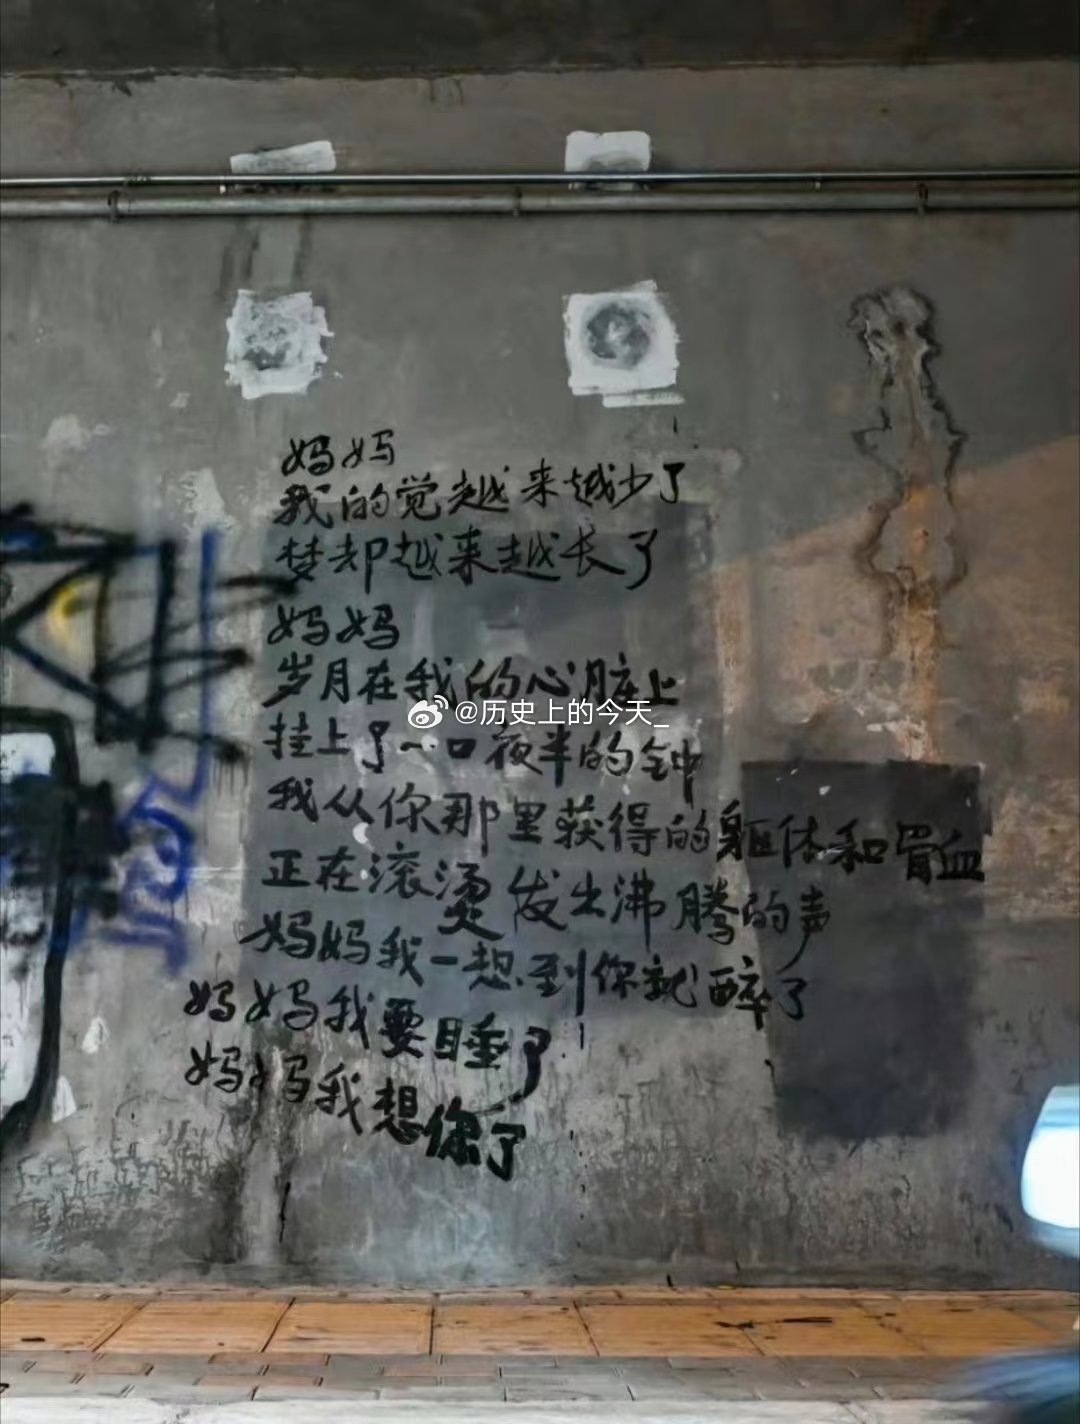 妈妈
我的觉越来越少了
梦却越来越长了
妈妈
岁月在我的心脏上
@历史上的今天_
挂上了一口夜半的钟
我从你那里获得的躯体和骨血
正在滚烫发出沸腾的声
妈妈我一想到你就醉了
妈妈我要睡了
妈妈我想你了